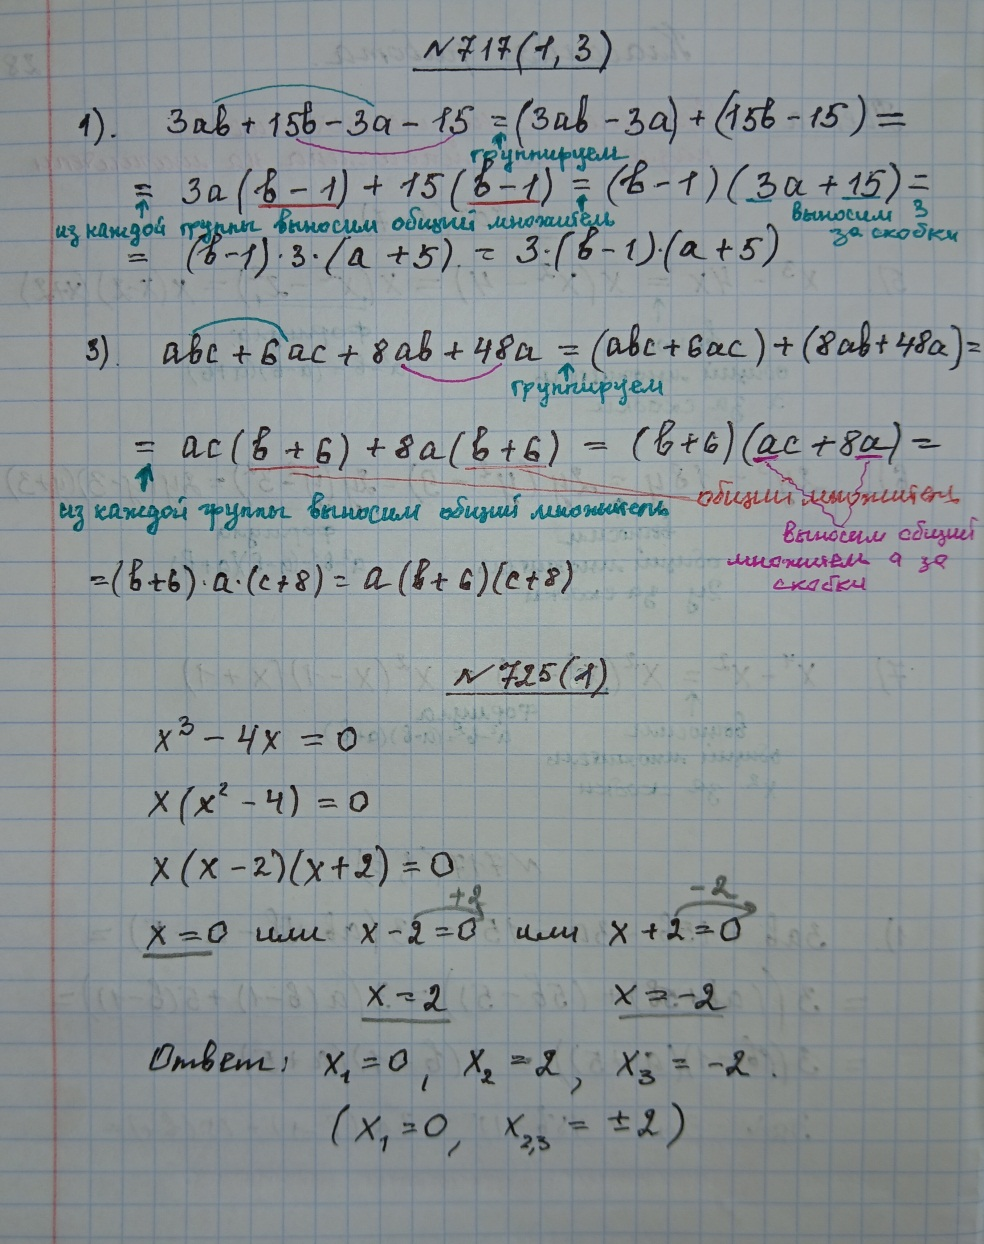 N717(1, 3)
1). 3ab + 15b - 3a - 15 = (3ab - 3a) + (15b - 15) =
группируем
= 3a(b - 1) + 15(b - 1) = (b - 1)(3a + 15) =
из каждой группы выносим общий множитель
выносим 3
за скобки
= (b - 1) · 3 · (a + 5) = 3 · (b - 1) · (a + 5)
3). abc + 6ac + 8ab + 48a = (abc + 6ac) + (8ab + 48a) =
группируем
= ac(b + 6) + 8a(b + 6) = (b + 6)(ac + 8a) =
общий множитель
из каждой группы выносим общий множитель
выносим общий
множителем a за
скобки
= (b + 6) · a · (c + 8) = a(b + 6)(c + 8)
N725(1)
x³ - 4x = 0
x(x² - 4) = 0
x(x - 2)(x + 2) = 0
+2 -2
x = 0 или x - 2 = 0 или x + 2 = 0
x = 2 x = -2
Ответ: x₁ = 0, x₂ = 2, x₃ = -2.
(x₁ = 0, x₂,₃ = ±2)